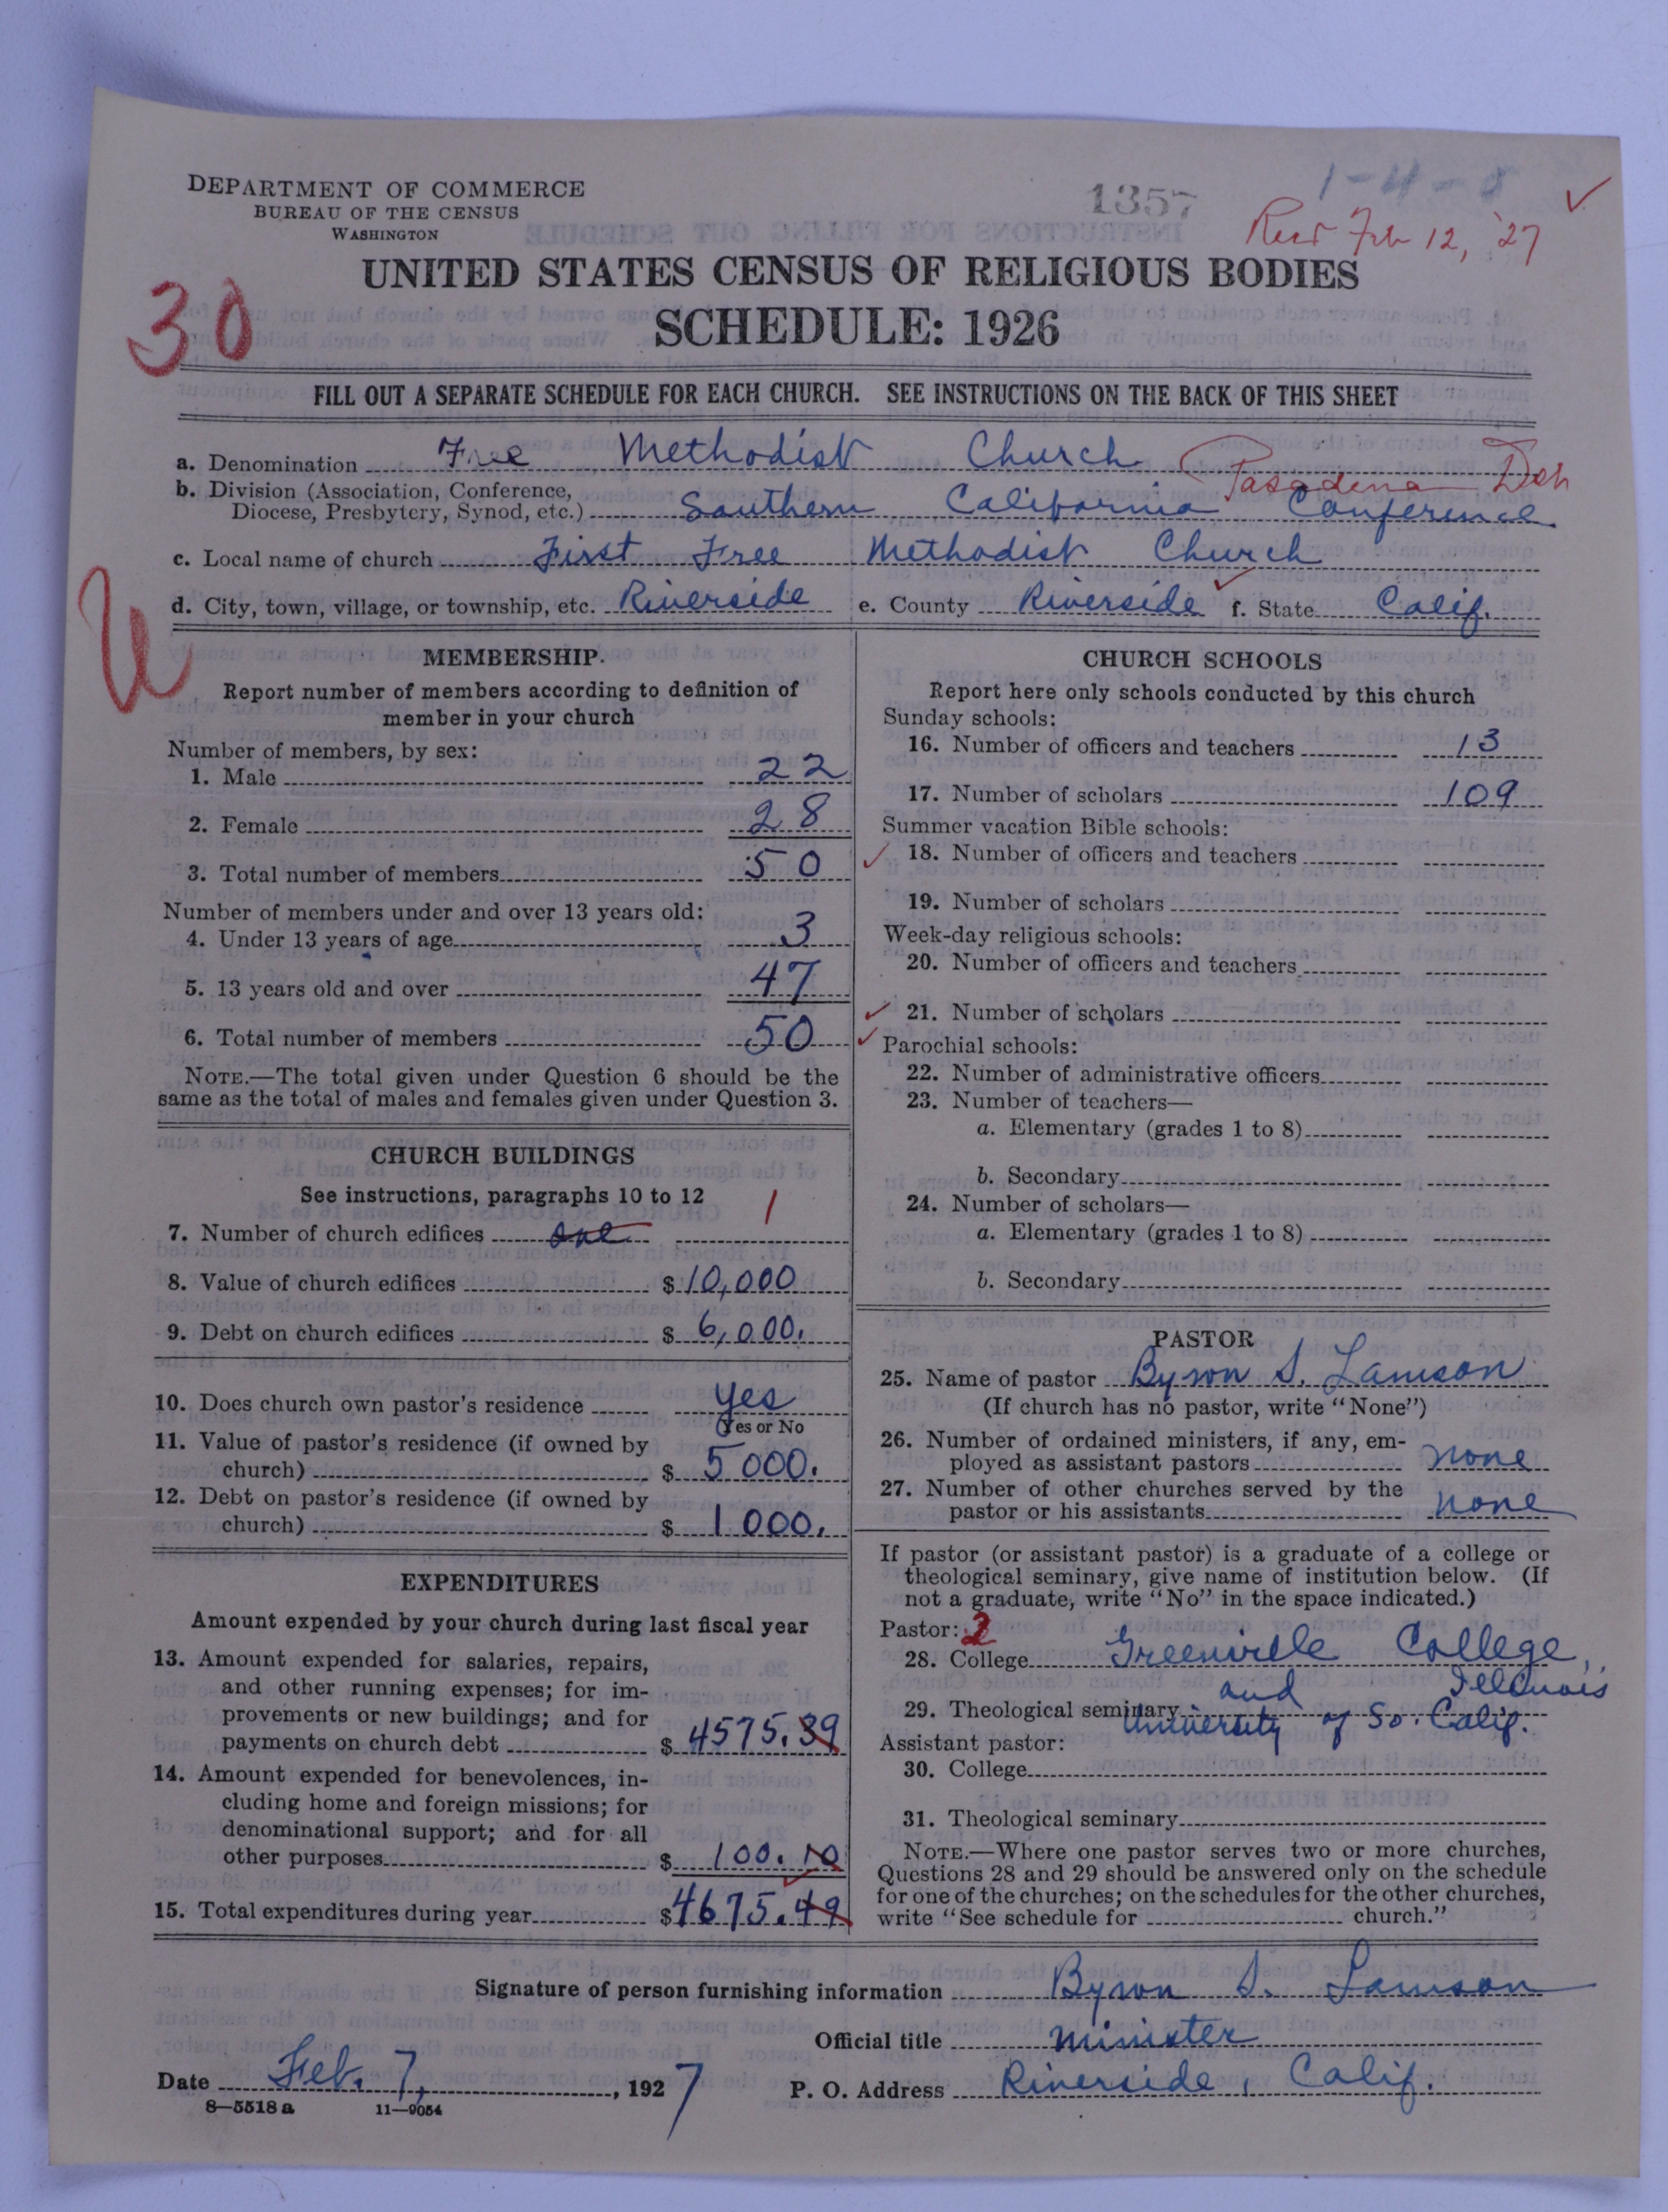 DEPARTMENT OF COMMERCE
BUREAU OF THE CENSUS
WASHINGTON
1357
1-4-8
Recd Feb 12, '27
UNITED STATES CENSUS OF RELIGIOUS BODIES
30
SCHEDULE: 1926
FILL OUT A SEPARATE SCHEDULE FOR EACH CHURCH. SEE INSTRUCTIONS ON THE BACK OF THIS SHEET
a. Denomination Free Methodist Church
Pasadena Dist
b. Division (Association, Conference,
Diocese, Presbytery, Synod, etc.) Southern California Conference
c. Local name of church First Free Methodist Church
d. City, town, village, or township, etc. Riverside e. County Riverside f. State Calif.
U
MEMBERSHIP.
Report number of members according to definition of
member in your church
Number of members, by sex:
1. Male 22
2. Female 28
3. Total number of members 50
Number of members under and over 13 years old:
4. Under 13 years of age 3
5. 13 years old and over 47
6. Total number of members 50
NOTE.—The total given under Question 6 should be the
same as the total of males and females given under Question 3.
CHURCH BUILDINGS
See instructions, paragraphs 10 to 12
7. Number of church edifices one 1
8. Value of church edifices $ 10,000
9. Debt on church edifices $ 6,000.
10. Does church own pastor's residence Yes
(Yes or No
11. Value of pastor's residence (if owned by
church) $ 5000.
12. Debt on pastor's residence (if owned by
church) $ 1000.
EXPENDITURES
Amount expended by your church during last fiscal year
13. Amount expended for salaries, repairs,
and other running expenses; for im-
provements or new buildings; and for
payments on church debt $ 4575.39
14. Amount expended for benevolences, in-
cluding home and foreign missions; for
denominational support; and for all
other purposes $ 100.10
15. Total expenditures during year $ 4675.49
CHURCH SCHOOLS
Report here only schools conducted by this church
Sunday schools:
16. Number of officers and teachers 13
17. Number of scholars 109
Summer vacation Bible schools:
18. Number of officers and teachers
19. Number of scholars
Week-day religious schools:
20. Number of officers and teachers
21. Number of scholars
Parochial schools:
22. Number of administrative officers
23. Number of teachers—
a. Elementary (grades 1 to 8)
b. Secondary
24. Number of scholars—
a. Elementary (grades 1 to 8)
b. Secondary
PASTOR
25. Name of pastor Byron S. Lamson
(If church has no pastor, write "None")
26. Number of ordained ministers, if any, em-
ployed as assistant pastors none
27. Number of other churches served by the
pastor or his assistants none
If pastor (or assistant pastor) is a graduate of a college or
theological seminary, give name of institution below. (If
not a graduate, write "No" in the space indicated.)
Pastor: 2
28. College Greenville College,
and Illinois
29. Theological seminary University of So. Calif.
Assistant pastor:
30. College
31. Theological seminary
NOTE.—Where one pastor serves two or more churches,
Questions 28 and 29 should be answered only on the schedule
for one of the churches; on the schedules for the other churches,
write "See schedule for church."
Signature of person furnishing information Byron S. Lamson
Official title Minister
Date Feb. 7, 1927 P. O. Address Riverside, Calif.
8—5518 a 11—9054